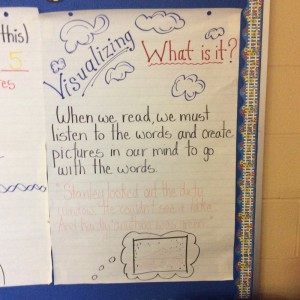 this)
5
res
Visualizing
What is it?
When we read, we must
listen to the words and create
pictures in our mind to go
with the words.
Stanley looked out the dirty
window. He couldn't see